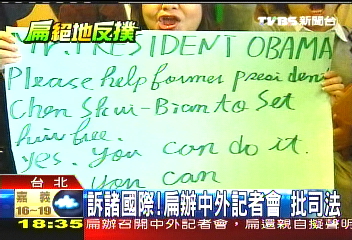 扁絕地反撲
TVBS新聞台
MR. PRESIDENT OBAMA
Please help former president
Chen Shui-Bian to Set
him free.
yes. You can do it.
you can
台北
嘉義
16~19
訴諸國際!扁辦中外記者會 批司法
18:35
扁辦召開中外記者會,扁還親自擬聲明